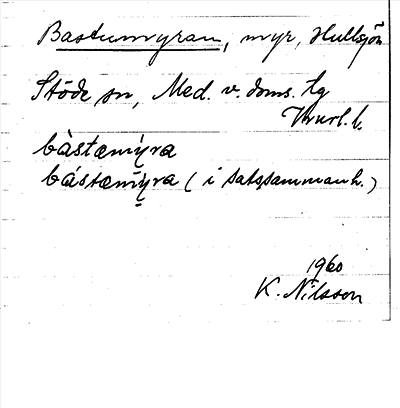 Bastumyran, myr, Hullsjön
Stöde sn, Med. v. doms. tg
bàstœmýra
bástœmỳra (i satssammanh.)
1960
K. Nilsson